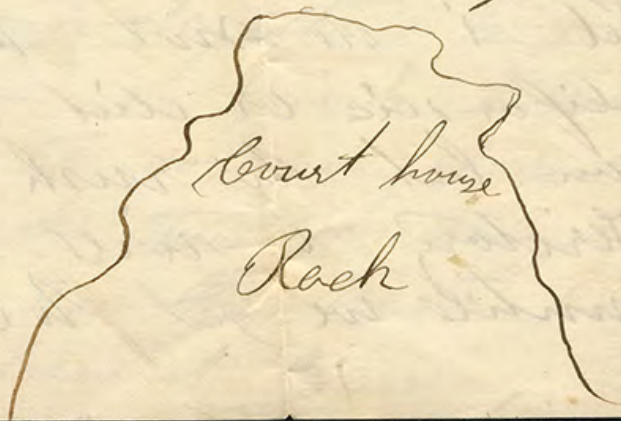 Court house
Rock